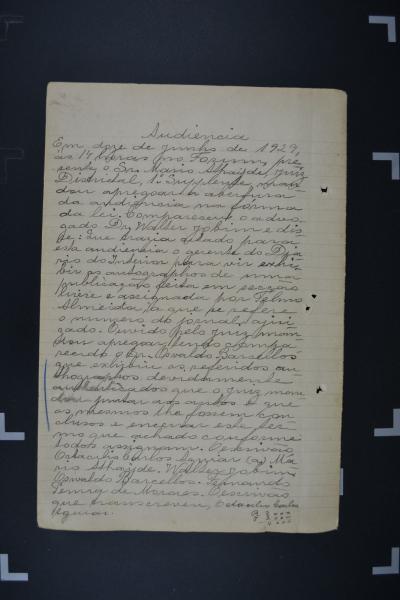 Audiencia
Em doze de Junho de 1929,
ás 14 horas no Forum, pre-
sente o Snr. Mario Athayde, Juiz
Districtal, 1º Supplente, man-
dou apregoar a abertura
da audiencia na forma
da lei. Compareseu o advo-
gado Dr. Walter Jobim e dis-
se: Que trazia citado para
esta audiencia o gerente do Dia-
rio do Interior para vir exhi-
bir os autographos de uma
publicação feita em secção
livre e assignada por Telmo
Almeida, a que se refere
o numero do jornal
Ouvido pelo Juiz man-
dou apregoar, tendo compa-
recido o Snr. Osvaldo Barcellos
que exhibiu os referidos au-
thographos devidamente
authenticados que o Juiz man-
dou juntar aos autos e que
os mesmos lhe fossem con-
clusos e encerrar este ter-
mo que achado conforme
todos assignam. O escrivão
Octacilio Carlos Aguiar (a) Ma-
rio Athayde. Walter Jobim.
Osvaldo Barcellos. Fernando
de Moraes. O escrivão
que transcreveu, Octacilio Carlos
Aguiar.